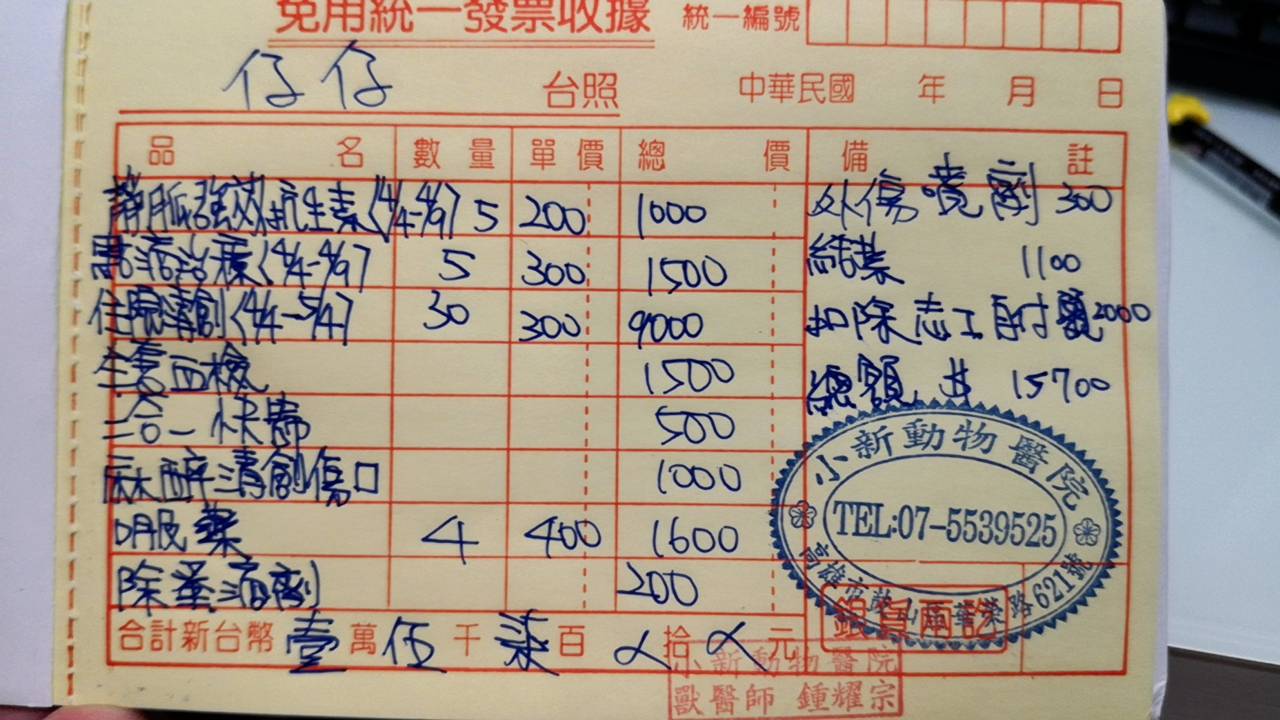 免用統一發票收據 統一編號
仔仔 台照 中華民國 年 月 日
品名 數量 單價 總價 備註
靜脈強效抗生素(4/4-4/9) 5 200 1000 外傷噴劑 300
點滴治療(4/4-4/9) 5 300 1500 結紮 1100
住院清創(4/4-5/4) 30 300 9000 扣除志工自付額 2000
全套血檢 1500 總額 $ 15700
二合一快篩 500
麻醉清創傷口 1000
口服藥 4 400 1600
除蚤滴劑 200
小新動物醫院
TEL:07-5539525
高雄市鼓山區華榮路621號
銀貨兩訖
合計新台幣 壹 萬 伍 千 柒 百 拾 元
小新動物醫院
獸醫師 鍾耀宗